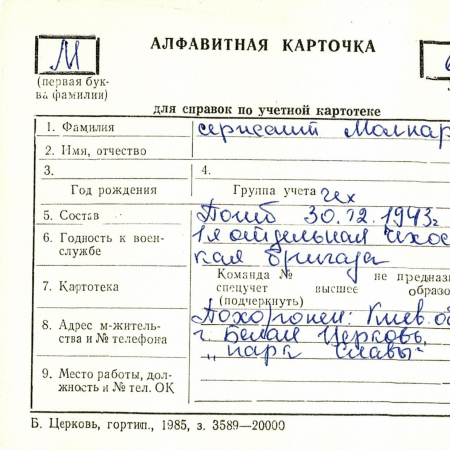 М
АЛФАВИТНАЯ КАРТОЧКА
(первая бук-
ва фамилии)
для справок по учетной картотеке
1. Фамилия сержант Молнар
2. Имя, отчество
3. 4.
Год рождения Группа учета чех
5. Состав Погиб 30.12.1943г
6. Годность к воен- 1я отдельная чехос
службе кая бригада
Команда № не предназн
7. Картотека спецучет высшее образо
(подчеркнуть)
8. Адрес м-житель- Похоронен: Киев. об
ства и № телефона г. Белая Церковь,
„парк Славы"
9. Место работы, дол-
жность и № тел. ОК
Б. Церковь, гортип., 1985, з. 3589—20000